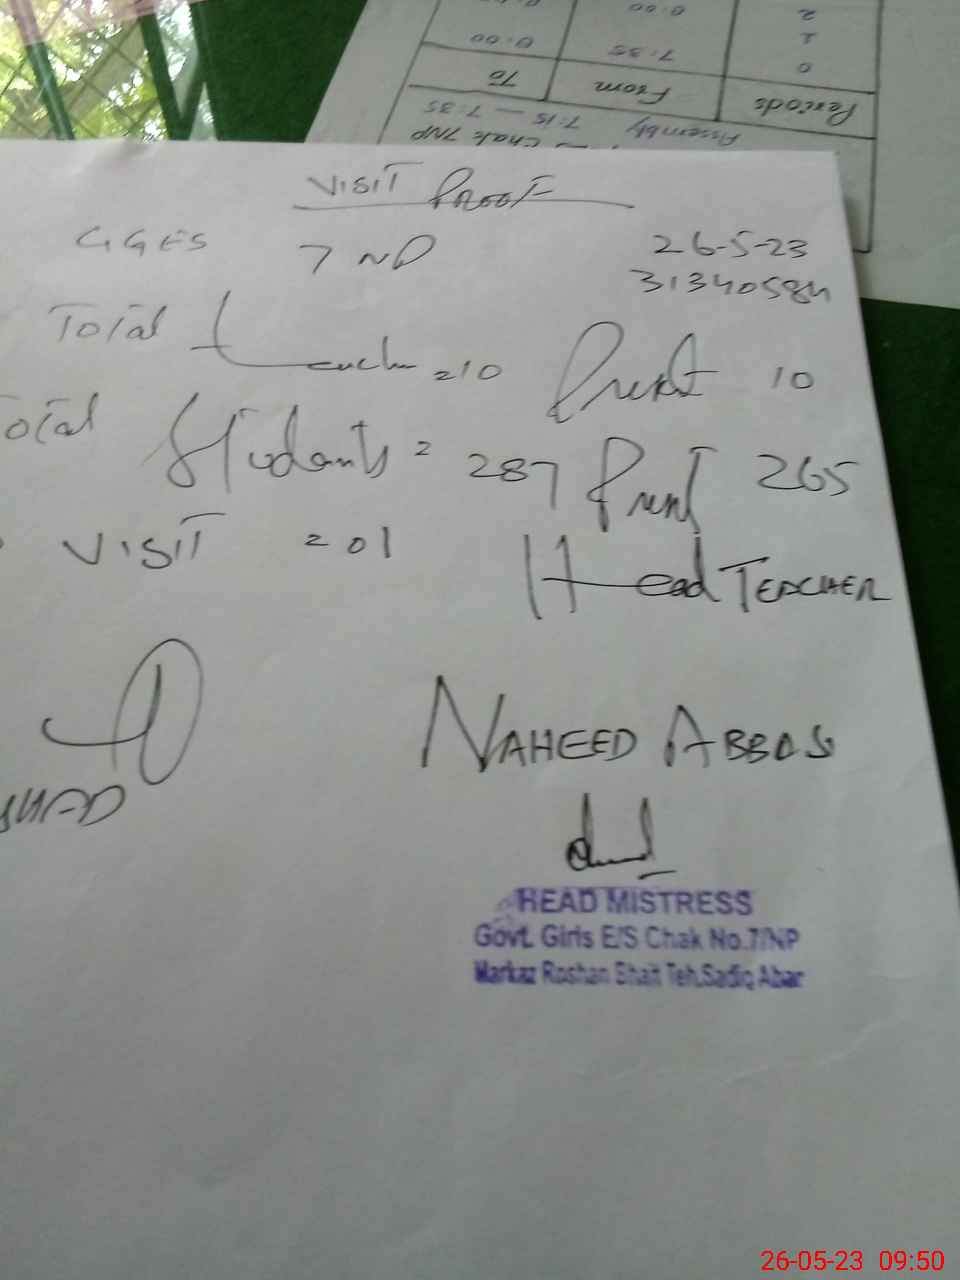 Periods From To
0 7:35
1
2
Assembly 7:15 — 7:35
Chak 7NP
VISIT PROOF
GGES 7 NP 26-5-23
31340584
Total teacher = 10 Present 10
Total Students = 287 Present 265
VISIT = 01 Head TEACHER
NAHEED ABBAS
HEAD MISTRESS
Govt. Girls E/S Chak No.7/NP
Markaz Roshan Bhait Teh.Sadiq Abad
26-05-23 09:50